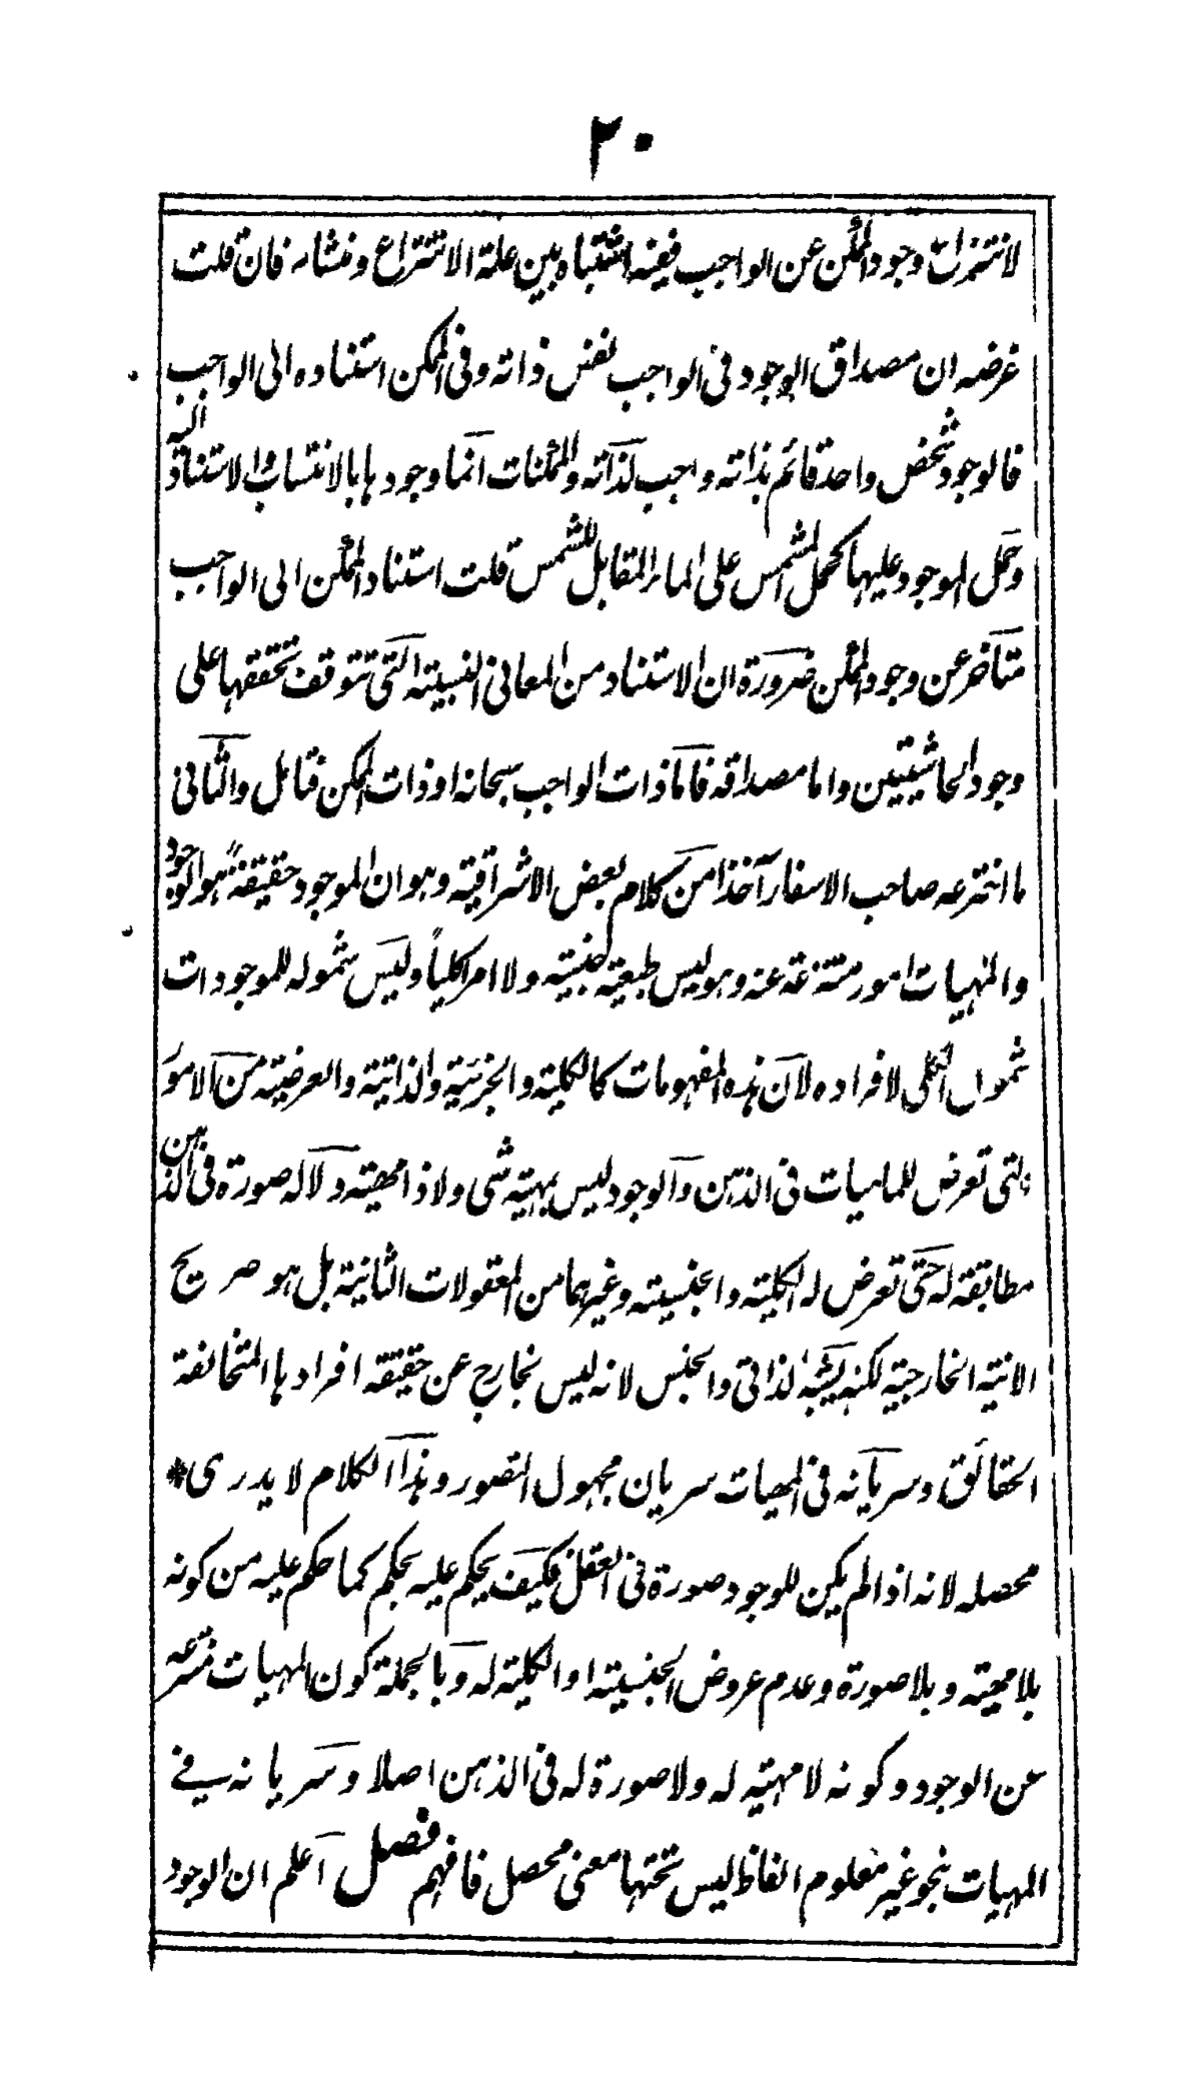 ٢٠
لانتزاع وجود الممكن عن الواجب ففيه اشتباه بين علة الانتزاع ومنشاه فان قلت
غرضه ان مصداق الوجود فى الواجب نفس ذاته وفى الممكن استناده الى الواجب
فالوجود شخص واحد قائم بذاته واجب لذاته والممكنات انما وجودها بالانتساب والاستناد اليه
وحمل الموجود عليها كحمل المشمس على الماء المقابل للشمس قلت استناد الممكن الى الواجب
متأخر عن وجود الممكن ضرورة ان الاستناد من المعانى النسبية التى تتوقف تحققها على
وجود الحاشيتين واما مصداقه فاما ذات الواجب سبحانه او ذات الممكن فتامل والثانى
ما اخترعه صاحب الاسفار آخذا من كلام بعض الاشراقية وهو ان الموجود حقيقة هو الوجود
والمهيات امور منتزعة عنه وهو ليس طبيعة جنسية ولا امرا كليا وليس شموله للموجودات
شمول الكلى لافراده لان هذه المفهومات كالكلية والجزئية والذاتية والعرضية من الامور
التى تعرض للماهيات فى الذهن والوجود ليس بمهية شى ولا ذا مهية ولا له صورة فى الذهن
مطابقة له حتى تعرض له الكلية والجنسية وغيرهما من المعقولات الثانية بل هو صريح
الانية الخارجية لكنه يشبه الذاتى والجنس لانه ليس بخارج عن حقيقة افرادها المتخالفة
الحقائق وسريانه فى المهيات سريان مجهول التصور وهذا الكلام لا يدرى *
محصله لانه اذا لم يكن للوجود صورة فى العقل فكيف يحكم عليه بحكم كما حكم عليه من كونه
بلا مهية وبلا صورة وعدم عروض الجنسية او الكلية له وبالجملة كون المهيات منتزعة
عن الوجود وكونه لا مهية له ولا صورة له فى الذهن اصلا وسريانه فى
المهيات بنحو غير معلوم الفاظ ليس تحتها معنى محصل فافهم فصل اعلم ان الوجود